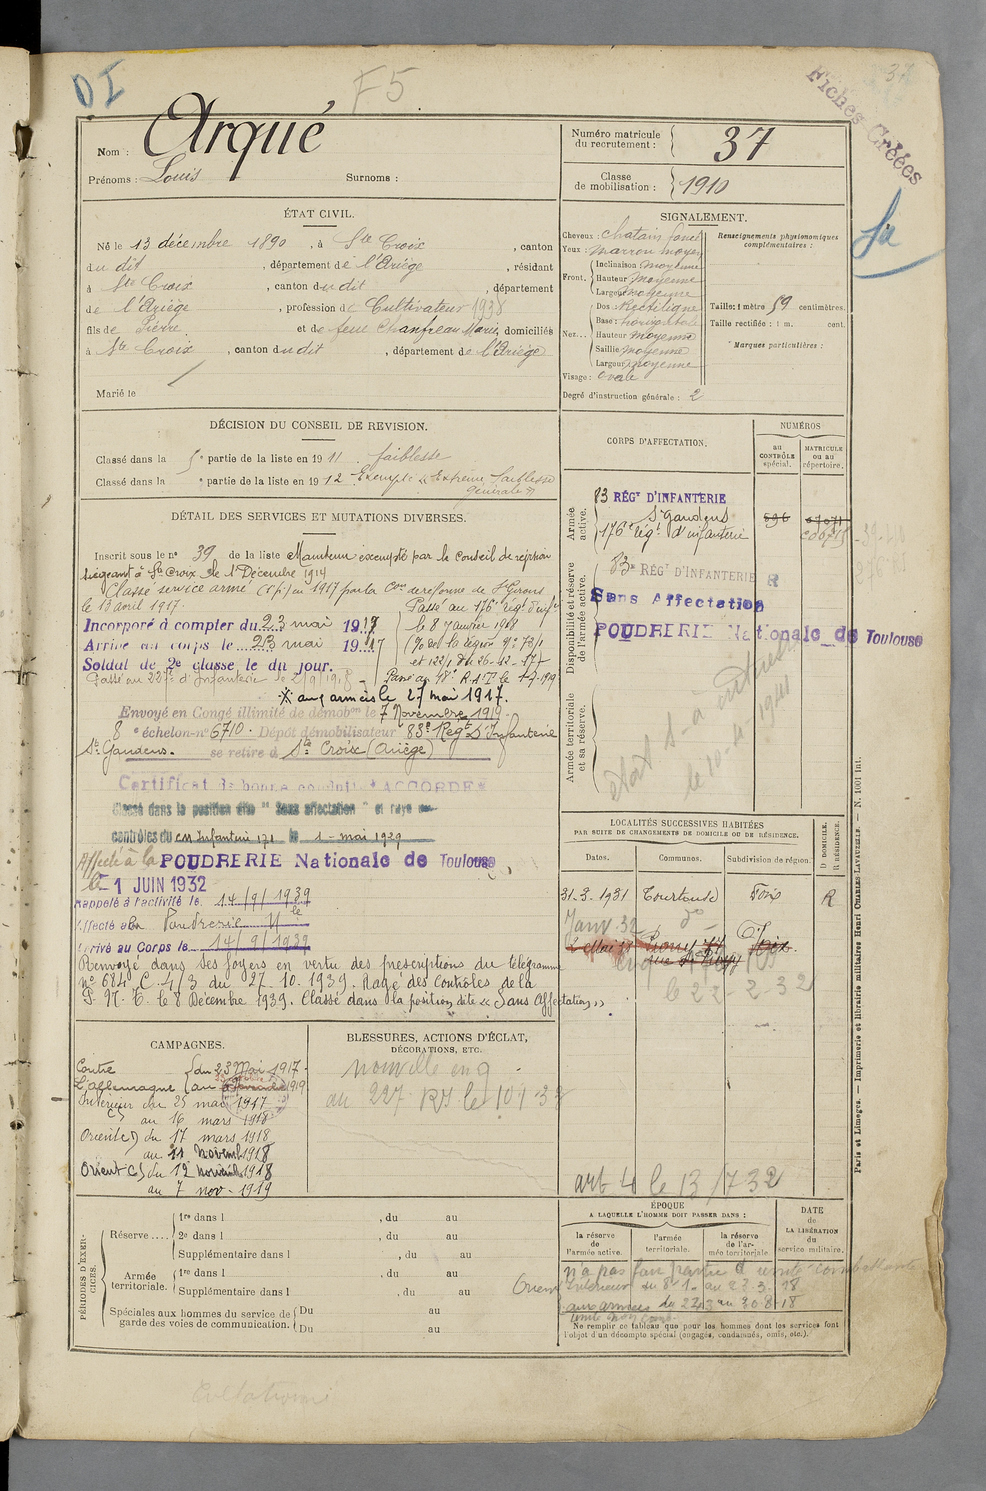 DI
F5
37
Fiches Créées
Nom : Arqué
Prénoms : Louis Surnoms :
Numéro matricule du recrutement : 37
Classe de mobilisation : 1910
ÉTAT CIVIL.
Né le 13 décembre 1890, à Ste Croix, canton
du dit, département de l'Ariège, résidant
à Ste Croix, canton du dit, département
de l'Ariège, profession de Cultivateur 1938
fils de Pierre et de feue Chanfreau Marie, domiciliés
à Ste Croix, canton du dit, département de l'Ariège
Marié le
SIGNALEMENT.
Cheveux : chatain foncé
Yeux : marron moyen
Front. Inclinaison moyenne
Hauteur moyenne
Largeur moyenne
Nez... Dos : Rectiligne
Base : horizontale
Hauteur moyenne
Saillie moyenne
Largeur moyenne
Visage : ovale
Renseignements physionomiques complémentaires :
Taille : 1 mètre 59 centimètres.
Taille rectifiée : 1 m. cent.
Marques particulières :
Degré d'instruction générale : 2
DÉCISION DU CONSEIL DE REVISION.
Classé dans la 5e partie de la liste en 1911 faiblesse
Classé dans la e partie de la liste en 1912 Exempté « Extrême faiblesse
générale »
DÉTAIL DES SERVICES ET MUTATIONS DIVERSES.
Inscrit sous le n° 39 de la liste Maintenu exempté par le Conseil de révision
siégeant à St Croix le 1 Décembre 1914
Classé service armé en 1917 par la Con de réforme de St Girons
le 13 avril 1917.
Passé au 176e Régt d'Infie
Incorporé à compter du 23 mai 1917
le 8 janvier 1918
Arrivé au corps le 23 mai 1917
Soldat de 2e classe le du jour.
Passé au 227e d'Infanterie le 2/9/1918
Passé au 48e R.A.T. le
aux armées le 27 mai 1917.
Envoyé en Congé illimité de démobon le 7 Novembre 1919
8e échelon n° 6710. Dépôt démobilisateur 83e Régt d'Infanterie
St Gaudens. se retire à Ste Croix (Ariège)
Certificat de bonne conduite "ACCORDÉ"
Classé dans la position dite "Sans affectation" et rayé des
contrôles du CM Infanterie 171 le 1 - mai 1929
Affecté à la POUDRERIE Nationale de Toulouse
le 1 JUIN 1932
Rappelé à l'activité le 14/9/1939
Affecté à la Poudrerie Nle
Arrivé au Corps le 14/9/1939
Renvoyé dans ses foyers en vertu des prescriptions du télégramme
n° 684 C 4/3 du 27-10-1939. Rayé des Contrôles de la
P. N. T. le 8 Décembre 1939. Classé dans la position dite « Sans Affectation »
CORPS D'AFFECTATION.
NUMÉROS
au CONTRÔLE spécial.
MATRICULE ou au répertoire.
Armée active.
83 RÉGT D'INFANTERIE
St Gaudens
176e Régt d'infanterie
Disponibilité et réserve de l'armée active.
83e RÉGT D'INFANTERIE
Sans Affectation
POUDRERIE Nationale de Toulouse
Armée territoriale et sa réserve.
le 10-4-1941
LOCALITÉS SUCCESSIVES HABITÉES
PAR SUITE DE CHANGEMENTS DE DOMICILE OU DE RÉSIDENCE.
Dates. Communes. Subdivision de région. D DOMICILE. R RÉSIDENCE.
31-3-1931 Tourtouse Foix R
Janv 32 do
le 22-2-32
CAMPAGNES.
Contre l'Allemagne du 23 Mai 1917
Intérieur du 23 mai 1917
au 16 mars 1918
Orient du 17 mars 1918
au 11 Novembre 1918
Orient du 12 Novembre 1918
au 7 nov. 1919
BLESSURES, ACTIONS D'ÉCLAT,
DÉCORATIONS, ETC.
art 4 le 13/7 32
PÉRIODES D'EXERCICES.
Réserve.... 1re dans l , du au
2e dans l , du au
Supplémentaire dans l , du au
Armée territoriale. 1re dans l , du au
Supplémentaire dans l , du au
Spéciales aux hommes du service de garde des voies de communication. Du au
Du au
ÉPOQUE
A LAQUELLE L'HOMME DOIT PASSER DANS :
la réserve de l'armée active.
l'armée territoriale.
la réserve de l'armée territoriale.
DATE de LA LIBÉRATION du service militaire.
n'a pas fait partie d'unité combattante
Ne remplir ce tableau que pour les hommes dont les services font
l'objet d'un décompte spécial (engagés, condamnés, omis, etc.).
Paris et Limoges. — Imprimerie et librairie militaires Henri CHARLES-LAVAUZELLE. — N. 1001 int.